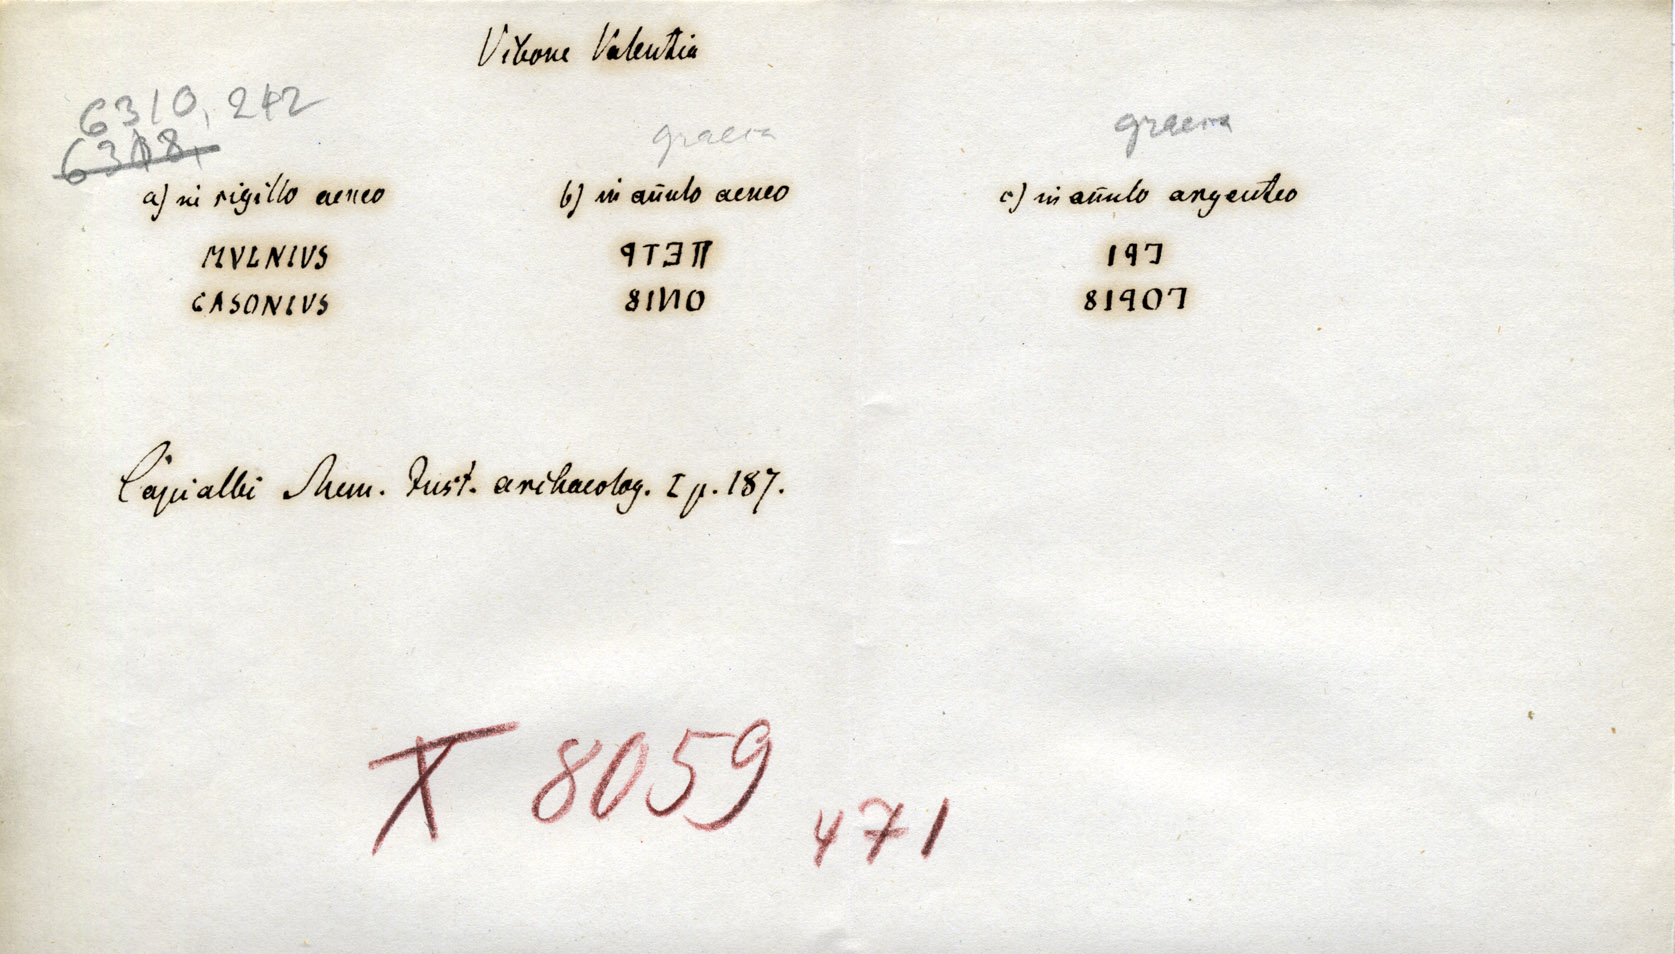 Vibone Valentia
6310, 242
6318,
graeca
graeca
a) in sigillo aeneo
b) in anulo aeneo
c) in anulo argenteo
MVLNIVS
CASONIVS
ꟼTƎΠ
8IИO
Capialbi Mem. Inst. archaeolog. I p. 187.
X 8059
471